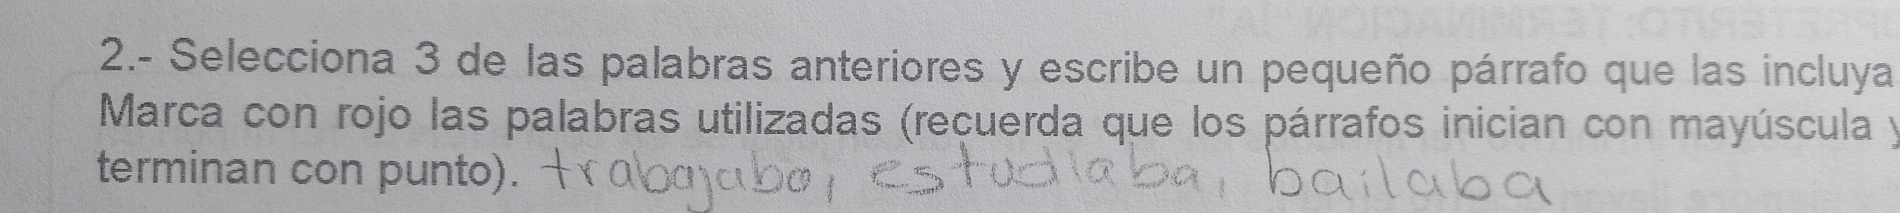 2.- Selecciona 3 de las palabras anteriores y escribe un pequeño párrafo que las incluya
Marca con rojo las palabras utilizadas (recuerda que los párrafos inician con mayúscula y
terminan con punto). trabajaba, estudiaba, bailaba